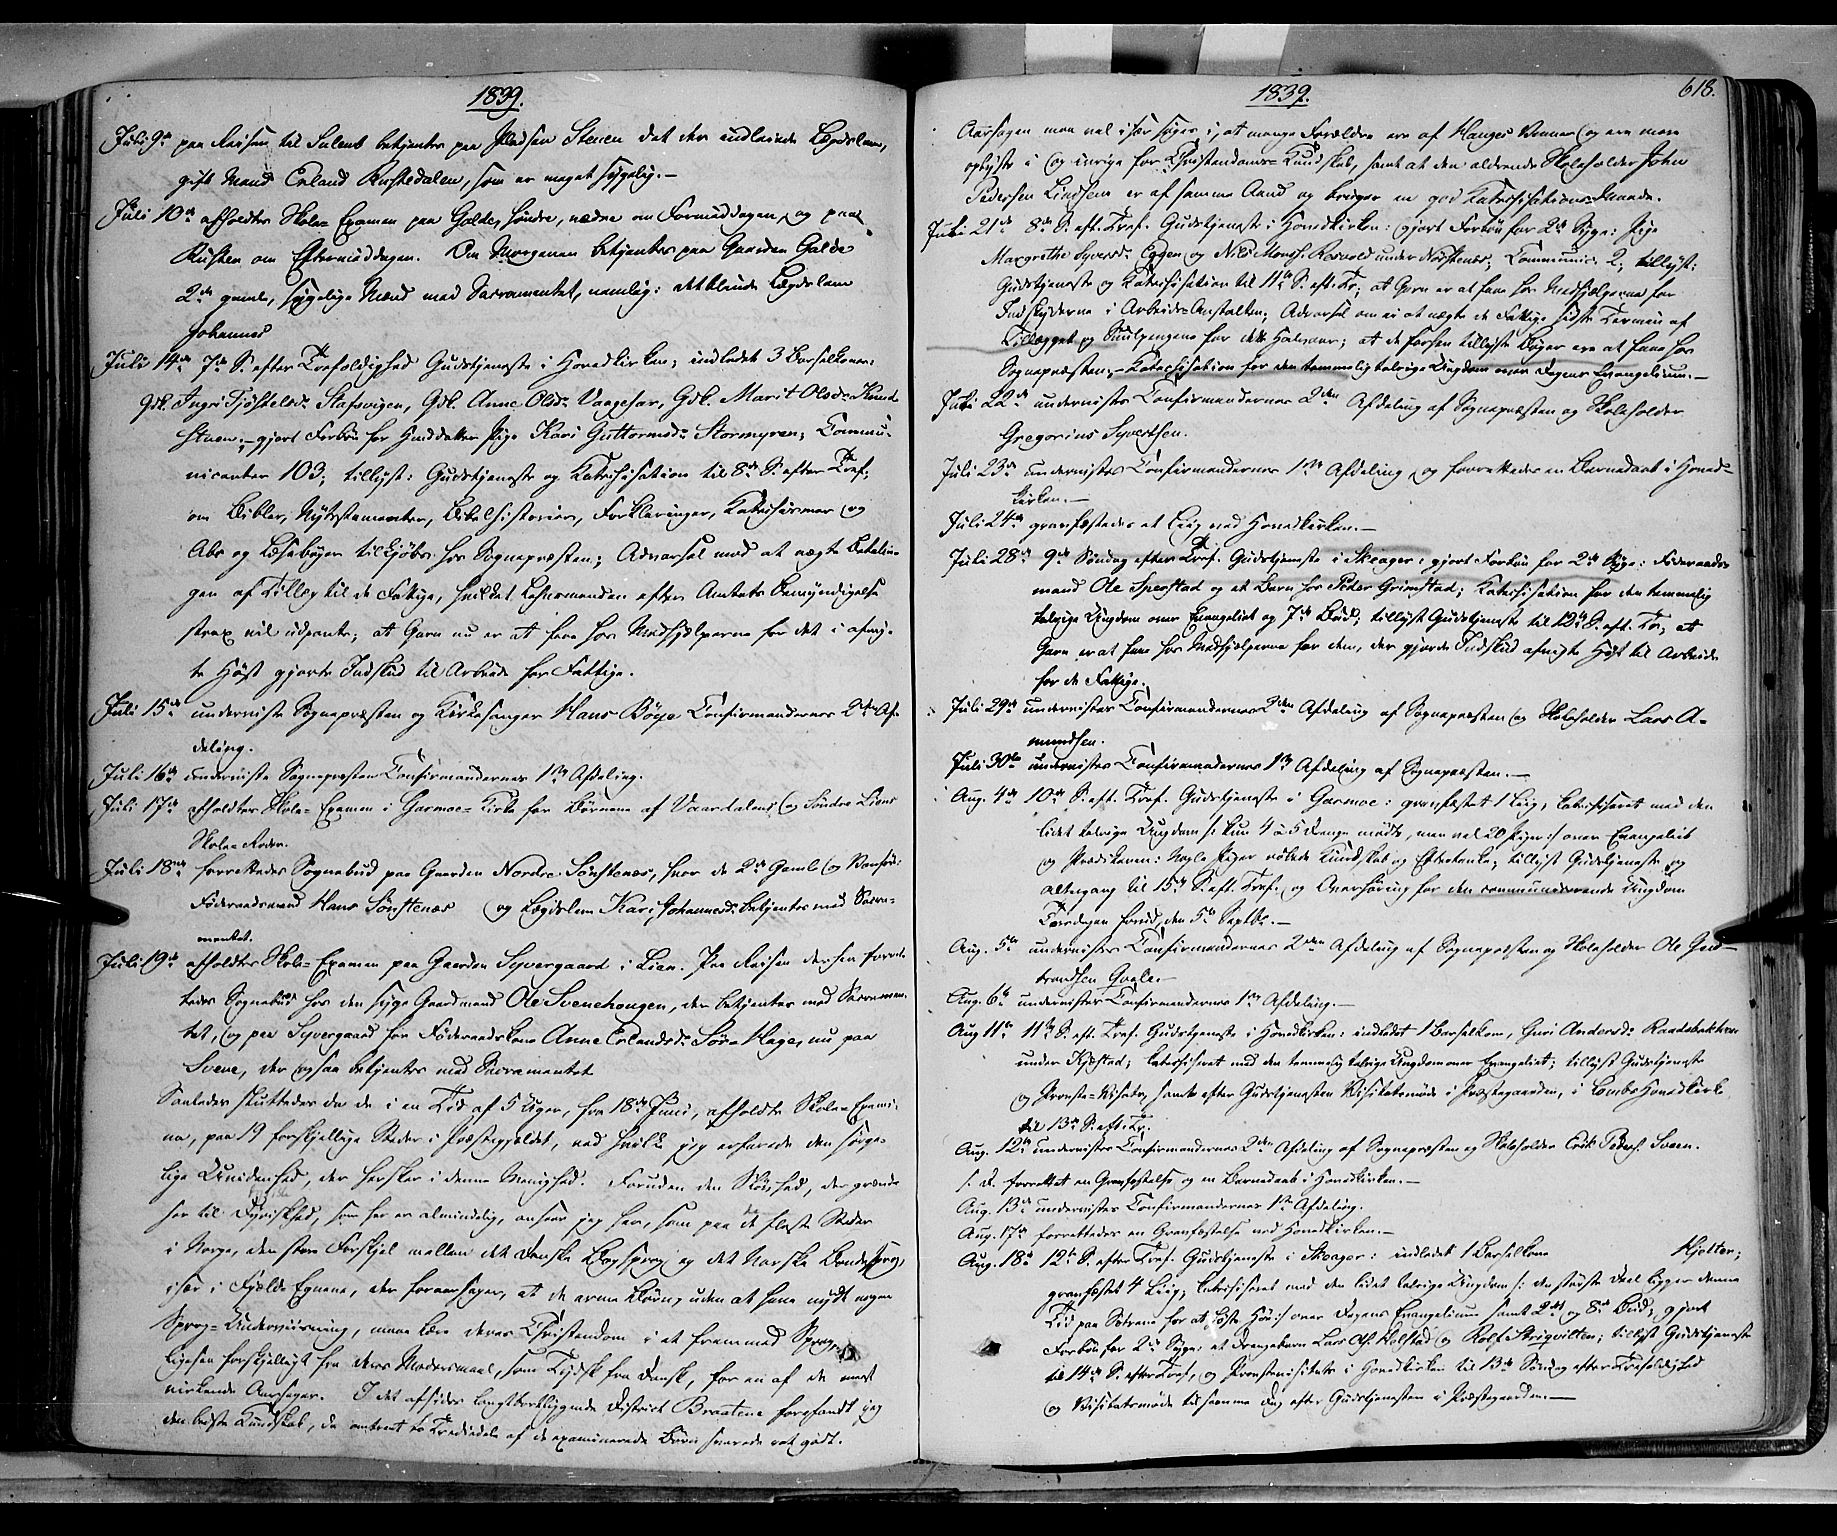 1839.
Juli 9de paa Reisen til Sulem betjentes paa Pladsen Steen det der indlagde Lægdslem,
gift Mand Erland Rustedalen, som er meget sygelig.—
Juli 10de afholdtes Skole-Examen paa Galde, Søndre, nedre om Formiddagen, og paa
Rusten om Eftermiddagen. Om Morgenen betjentes paa Gaarden Galde
2de gamle, sygelige Mænd med Sacramentet, nemlig: det blinde Lægdslem
Johannes
Juli 14de 7de S. efter Trefoldighed Gudstjeneste i Hovedkirken; indledet 3 Barselkoner:
Gdk. Ingri Tjøstelsdr. Stafsvigen, Gdk. Anne Olsdr. Vaagesar, Gdk. Marit Olsdr. Knud
Stuen;—gjort Forbøn for Huusdatter Pige Kari Guttormsdr. Stormyren; Commu-
nicanter 103; tillyst: Gudstjeneste og Katechisation til 8de S. efter Tref.
om Bibler, Nytestamenter, Bibelhistorier, Forklaringer, Katechismer og
Abc og Læsebøger tilkjøbs hos Sognepræsten; Advarsel mod at nægte Betalin-
gen af Tillæg til de Fattige, hvilket Lehnsmanden efter Amtets Bemyndigelse
strax vil udpante; at Garn nu er at faae hos Medhjælperne for det i afvig-
te Høst gjorte Indskud til Arbeide for Fattige.
Juli 15de underviste Sognepræsten og Kirkesanger Hans Bøye Confirmandernes 2den Af-
deling.
Juli 16de underviste Sognepræsten Confirmandernes 1ste Afdeling.
Juli 17de afholdtes Skole-Examen i Garmoe-Kirke for Børnene af Vaardalens og Søndre Liens
Skole-Roder.
Juli 18de forrettedes Sognebud paa Gaarden Nordre Sønstenæs, hvor de 2de Gamle og Vanføre:
Føderaadsmand Hans Sønstenæs og Lægdslem Kari Johannesdr. betjentes med Sacra-
mentet.
Juli 19de afholdtes Skole-Examen paa Gaarden Syvergaard i Lien. Paa Reisen derhen forret-
tedes Sognebud hos den syge Gaardmand Ole Svenehougen, der betjentes med Sacramen-
tet, og paa Syvergaard hos Føderaadskone Anne Erlandsdr. Søre Hage, nu paa
Svene, der ogsaa betjentes med Sacramentet
Saaledes sluttedes da de i en Tid af 5 Uger, fra 18de Juni, afholdte Skole-Exami-
na, paa 19 forskjellige Steder i Præstegjeldet, ved hvilke jeg erfarede den sørge-
lige Uvidenhed, der hersker i denne Menighed. Foruden den Slövhed, der grænd-
ser til Dyriskhed, som her er almindelig, ansaae jeg her, som paa de fleste Steder
i Norge, den store Forskjel mellem det Danske Bogsprog og det Norske Bondesprog,
især i Fjeld-Egnene, der foraarsager, at de arme Børn, uden at have nydt nogen
Sprog-Underviisning, maae lære deres Christendom i et fremmed Sprog,
ligesaa forskjelligt fra deres Modersmaal, som Tydsk fra Dansk, for en af de mest
virkende Aarsager. I det afsides langtbortliggende District Braatene forefandt jeg
den bedste Kundskab, da omtrent to Trediedele af de examinerede Børn svarede ret godt.
1839.
618.
Aarsagen maa vel især søges i, at mange Forældre ere af Hauges Venner og ere mere
oplyste i og ivrige for Christendoms-Kundskab, samt at den aldrende Skoleholder John
Pedersen Lindsem er af samme Aand og bruger en god Katechisations-Maade.
Juli 21de 8de S. eft. Tref. Gudstjeneste i Hovedkirken: gjort Forbøn for 2de Syge: Pige
Margrethe Syversdr. Eggen og Nils Monss. Rosvold under Nørstenæs; Communic. 2; tillyst:
Gudstjeneste og Katechisation til 11te S. eft. Tr.; at Garn er at faae hos Medhjælperne for
Indskyderne i Arbeids-Anstalten; Advarsel om ei at nægte de Fattige sidste Termin af
Tillægget og Smulpengene for dette Halvaar; at de forhen tillyste Bøger ere at faae hos
Sognepræsten;—Katechisation for den temmelig talrige Ungdom over Dagens Evangelium.—
Juli 22de undervistes Confirmandernes 2den Afdeling af Sognepræsten og Skoleholder
Gregorius Syvertsen.
Juli 23de undervistes Confirmandernes 1ste Afdeling, og forrettedes en Barnedaab i Hoved-
kirken.—
Juli 24de gravfæstedes et Liig ved Hovedkirken.—
Juli 28de 9de Søndag efter Tref. Gudstjeneste i Skeager: gjort Forbøn for 2de Syge: Føderaads-
mand Ole Sperstad og et Barn hos Peder Grimstad; Katechisation for den temmelig
talrige Ungdom over Evangeliet og 7de Bud; tillyst Gudstjeneste til 12te S. eft. Tr.; at
Garn er at faae hos Medhjælperne for dem, der gjorde Indskud afvigte Høst til Arbeide
for de Fattige.
Juli 29de undervistes Confirmandernes 2den Afdeling af Sognepræsten og Skoleholder Lars A-
mundsen.
Juli 30te undervistes Confirmandernes 1ste Afdeling af Sognepræsten.—
Aug. 4de 10de S. eft. Tref. Gudstjeneste i Garmoe: gravfæstet 1 Liig, katechiseret med den
lidet talrige Ungdom /: kun 4 à 5 Drenge mødte, men vel 20 Piger :/ over Evangeliet
og Prædikenen: Nogle Piger røbede Kundskab og Eftertanke; tillyst Gudstjeneste og
Altergang til 15de S. eft. Tref. og Overhøring for den communicerende Ungdom
Torsdagen forud, den 5te Septbr.—
Aug. 5te undervistes Confirmandernes 2den Afdeling af Sognepræsten og Skoleholder Ole
trondsen Qvale.—
Aug. 6te undervistes Confirmandernes 1ste Afdeling.—
Aug 11te 11te S. eft. Tref. Gudstjeneste i Hovedkirken: indledet 1 Barselkone, Guri Andersdr. Raadsbakken
under Kjæstad; katechiseret med den temmelig talrige Ungdom over Evangeliet; tillyst Gudstjeneste
og Provste-Visitats, samt efter Gudstjenesten Visitatsmøde i Præstegaarden, i Lomb Hovedkirke
til 13de S. eft. Tr.
Aug. 12te undervistes Confirmandernes 2den Afdeling af Sognepræsten og Skoleholder Erik Peders. Sveen.
s. D. forrettet en Gravfæstelse og en Barnedaab i Hovedkirken.—
Aug. 13de undervistes Confirmandernes 1ste Afdeling.
Aug. 17de forrettedes en Gravfæstelse ved Hovedkirken.—
Aug. 18de 12te S. efter Tref. Gudstjeneste i Skeager: indledet 1 Barselkone Hjelter;
gravfæstet 4 Liig; katechiseret med den lidet talrige Ungdom /: den største Deel ligger denne
Tid paa Sætrene for at høste Høe :/ over Dagens Evangelium samt 2det og 8de Bud; gjort
Forbøn for 2de Syge: et Drengebarn Lars Ols. Holstad og Rolf Strigvilten; tillyst Gudstjeneste
til 14de S. efter Tref. og Provstevisitats i Hovedkirken til 13de Søndag efter Trefoldighed
og Visitatsmøde til samme Dag efter Gudstjenesten i Præstegaarden.—